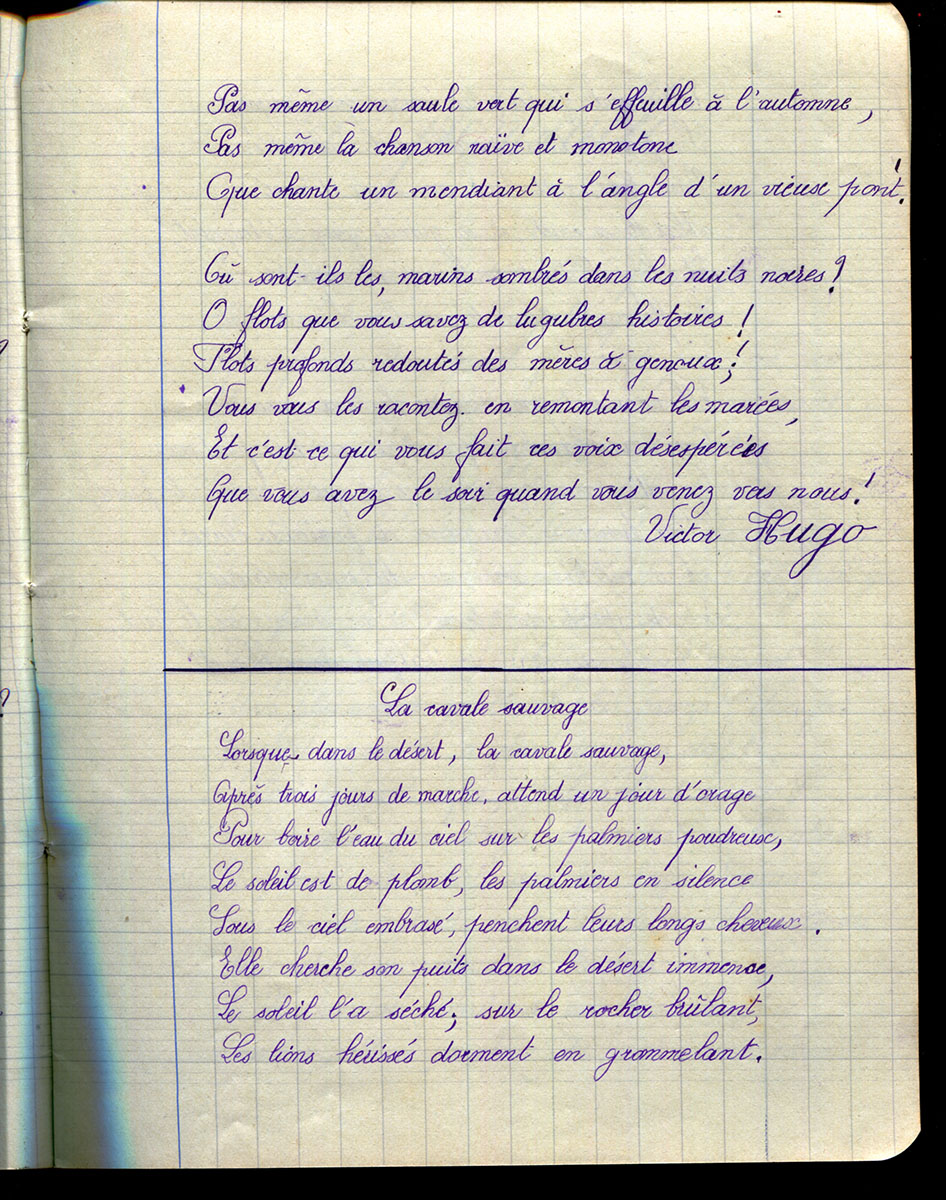 Pas même un saule vert qui s'effeuille à l'automne,
Pas même la chanson naïve et monotone
Que chante un mendiant à l'angle d'un vieux pont!
Où sont-ils les, marins sombrés dans les nuits noires?
O flots que vous savez de lugubres histoires!
Flots profonds redoutés des mères à genoux;!
Vous vous les racontez en remontant les marées,
Et c'est ce qui vous fait ces voix désespérées
Que vous avez le soir quand vous venez vers nous!
Victor Hugo
La cavale sauvage
Lorsque dans le désert, la cavale sauvage,
Après trois jours de marche, attend un jour d'orage
Pour boire l'eau du ciel sur les palmiers poudreux,
Le soleil est de plomb, les palmiers en silence
Sous le ciel embrasé, penchent leurs longs cheveux.
Elle cherche son puits dans le désert immence,
Le soleil l'a séché; sur le rocher brûlant,
Les lions hérissés dorment en grommelant.